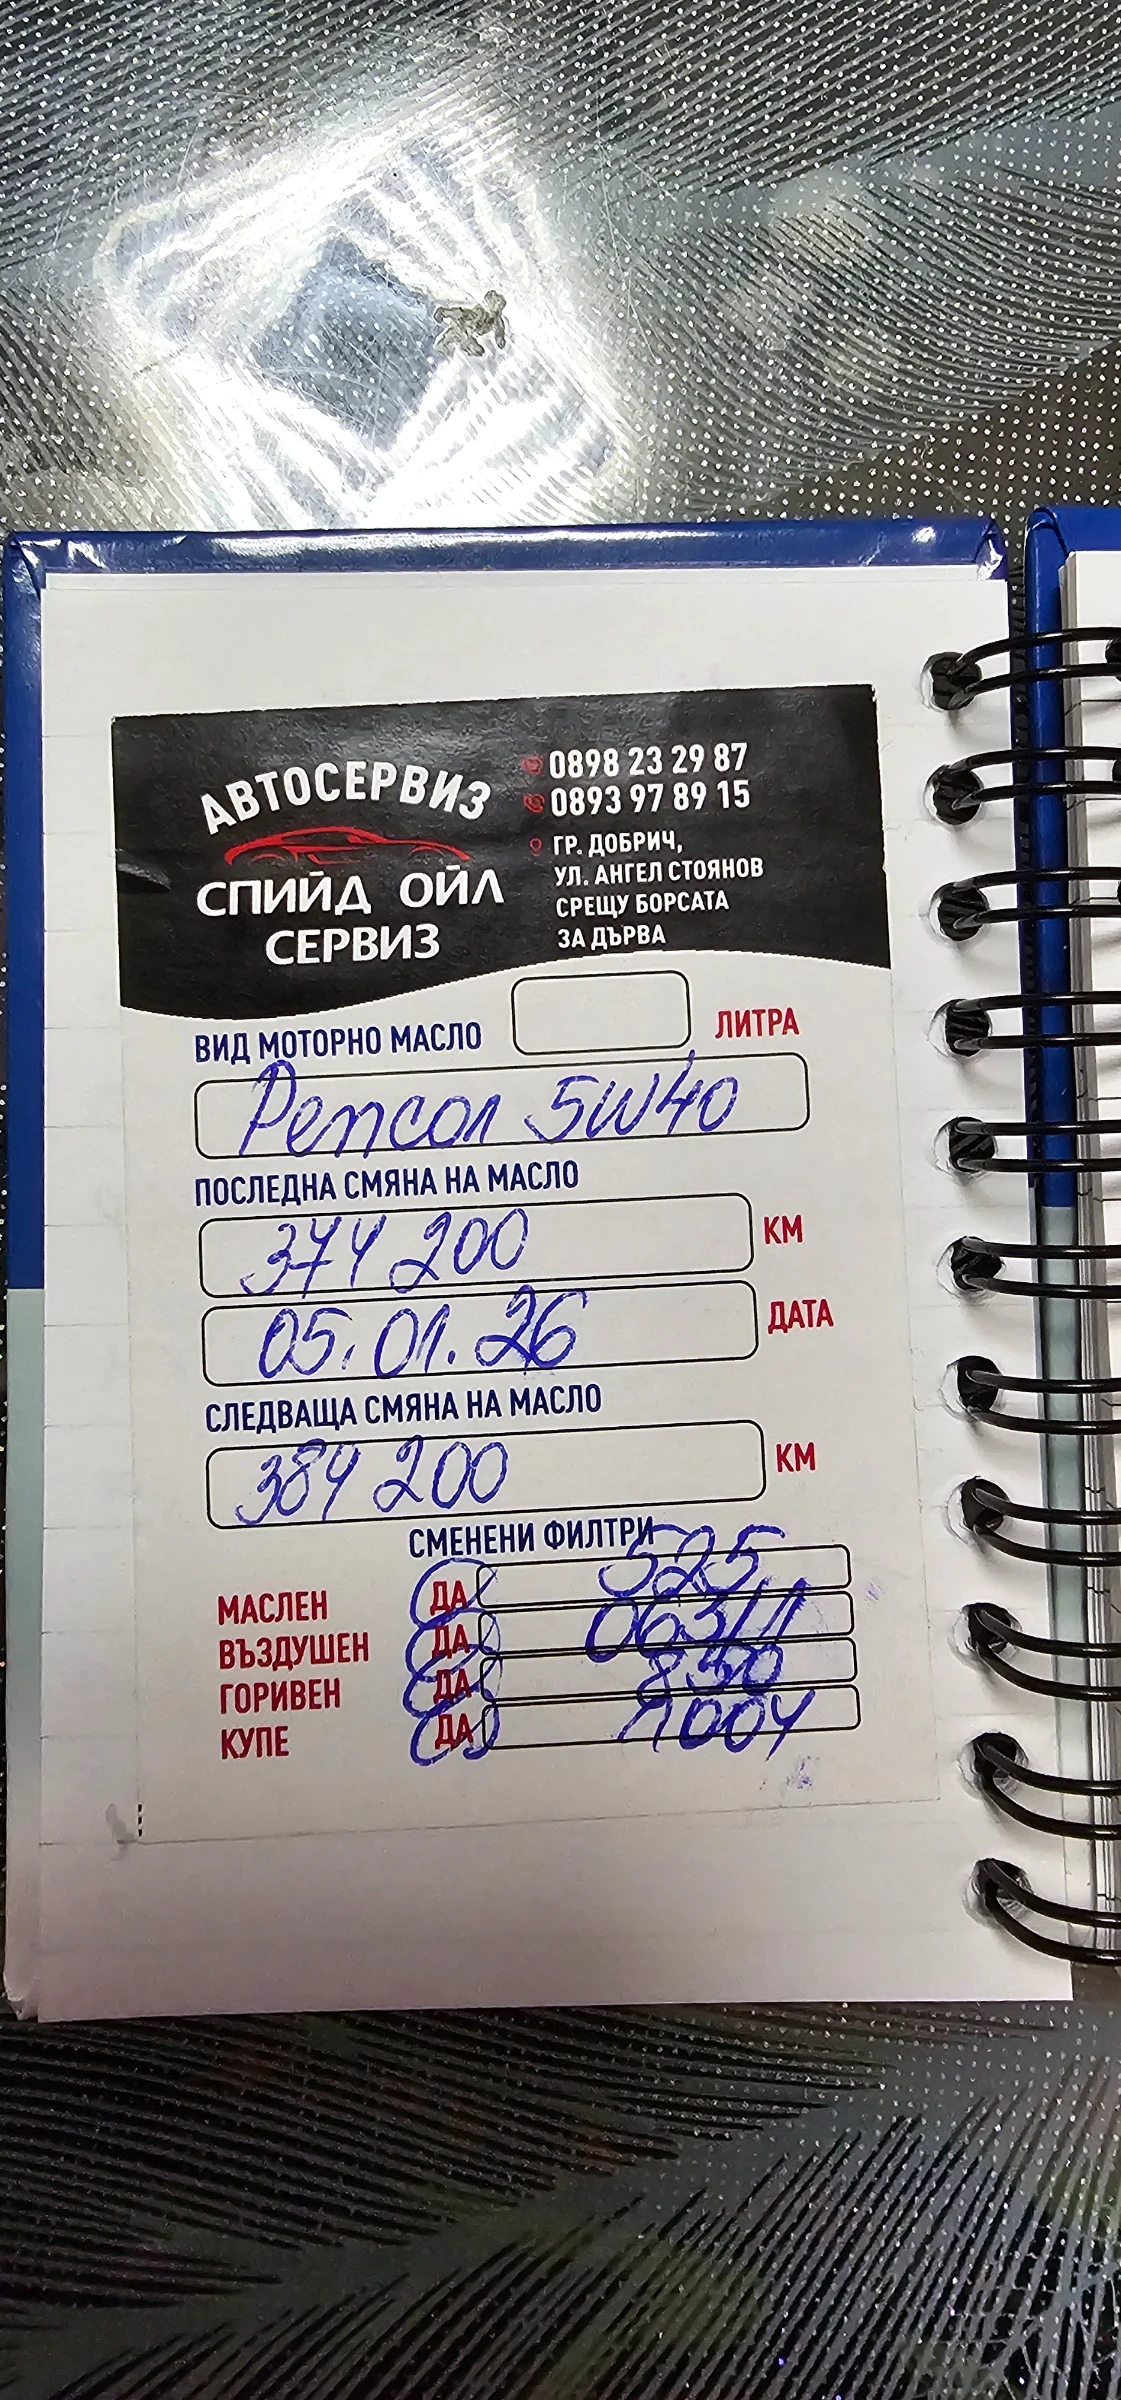 АВТОСЕРВИЗ
СПИЙД ОЙЛ
СЕРВИЗ
0898 23 29 87
0893 97 89 15
ГР. ДОБРИЧ,
УЛ. АНГЕЛ СТОЯНОВ
СРЕЩУ БОРСАТА
ЗА ДЪРВА
ВИД МОТОРНО МАСЛО ЛИТРА
Репсол 5W40
ПОСЛЕДНА СМЯНА НА МАСЛО
374 200 КМ
05.01.26 ДАТА
СЛЕДВАЩА СМЯНА НА МАСЛО
384 200 КМ
СМЕНЕНИ ФИЛТРИ
МАСЛЕН ДА 525
ВЪЗДУШЕН ДА
ГОРИВЕН ДА
КУПЕ ДА